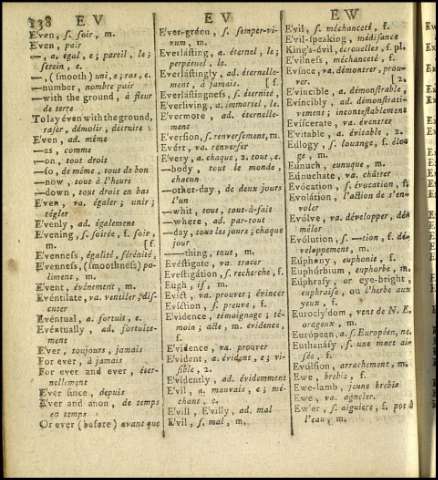 338 E V
E V
E W
Even, s. soir, m.
Even, pair
—, a. égal, e; pareil, le;
serein, e.
—, (smooth) uni, e; ras, e.
—number, nombre pair
—with the ground, à fleur
de terre
To lay even with the ground,
raser, démolir, détruire
Even, ad. même
—as, comme
—on, tout droit
—so, de même, tout de bon
—now, tout à l'heure
—down, tout droit en bas
Even, va. égaler; unir;
régler
Evenly, ad. également
Evening, s. soirée, f. soir,
m. [f.
Evenness, égalité, sérénité,
Evenness, (smoothness) po-
liment, m.
Event, événement, m.
Eventilate, va. ventiler, discuter
Eventual, a. fortuit, e.
Eventually, ad. fortuite-
ment
Ever, toujours, jamais
For ever, à jamais
For ever and ever, éter-
nellement
Ever since, depuis
Ever and anon, de temps
en temps
Or ever (before) avant que
Ever-green, s. semper-vi-
vum, m.
Everlasting, a. éternel, le;
perpétuel, le.
Everlastingly, ad. éternelle-
ment, à jamais. [f.
Everlastingness, s. éternité,
Everliving, a. immortel, le.
Evermore, ad. éternelle-
ment
Eversion, s. renversement, m.
Evert, va. renverser
Every, a. chaque, 2. tout, e.
—body, tout le monde,
chacun
—other-day, de deux jours
l'un
—whit, tous, tout-à-fait
—where, ad. par-tout
—day, tous les jours; chaque
jour
—thing, tout, m.
Evestigate, va. tracer
Evestigation, s. recherche, f.
Eugh, if, m.
Evict, va. prouver; évincer
Eviction, s. preuve, f.
Evidence, témoignage; té-
moin; acte, m. evidence,
f.
Evidence, va. prouver
Evident, a. évident, e; vi-
sible, 2.
Evidently, ad. évidemment
Evil, a. mauvais, e; mé-
chant, e.
Evil, Evilly, ad. mal
Evil, s. mal, m.
Evil, s. méchanceté, f.
Evil-speaking, médisance
King's-evil, écrouelles, f. pl.
Evilness, méchanceté, f.
Evince, va. démontrer, prou-
ver. [2.
Evincible, a. démonstrable,
Evincibly, ad. démonstrati-
vement; incontestablement
Eviscerate, va. éventrer
Evitable, a. évitable, 2.
Eulogy, s. louange, f. élo-
ge, m.
Eunuch, eunuque, m.
Eunuchate, va. châtrer
Evocation, s. évocation, f.
Evolation, l'action de s'en-
voler
Evolve, va. développer, dé-
mêler
Evolution, s. —tion, f. dé-
veloppement, m.
Euphony, euphonie, f.
Euphorbium, euphorbe, m.
Euphrasy, or eye-bright,
euphraise, ou l'herbe aux
yeux, f.
Euroclydon, vent de N. E.
orageux, m.
European, a. s. Européen, ne.
Euthanasy, s. une mort ai-
sée, f.
Evulsion, arrachement, m.
Ewe, brebis, f.
Ewe-lamb, jeune brebis
Ewe, va. agneler.
Ewer, s. aiguiere, f. pot à
l'eau, m.